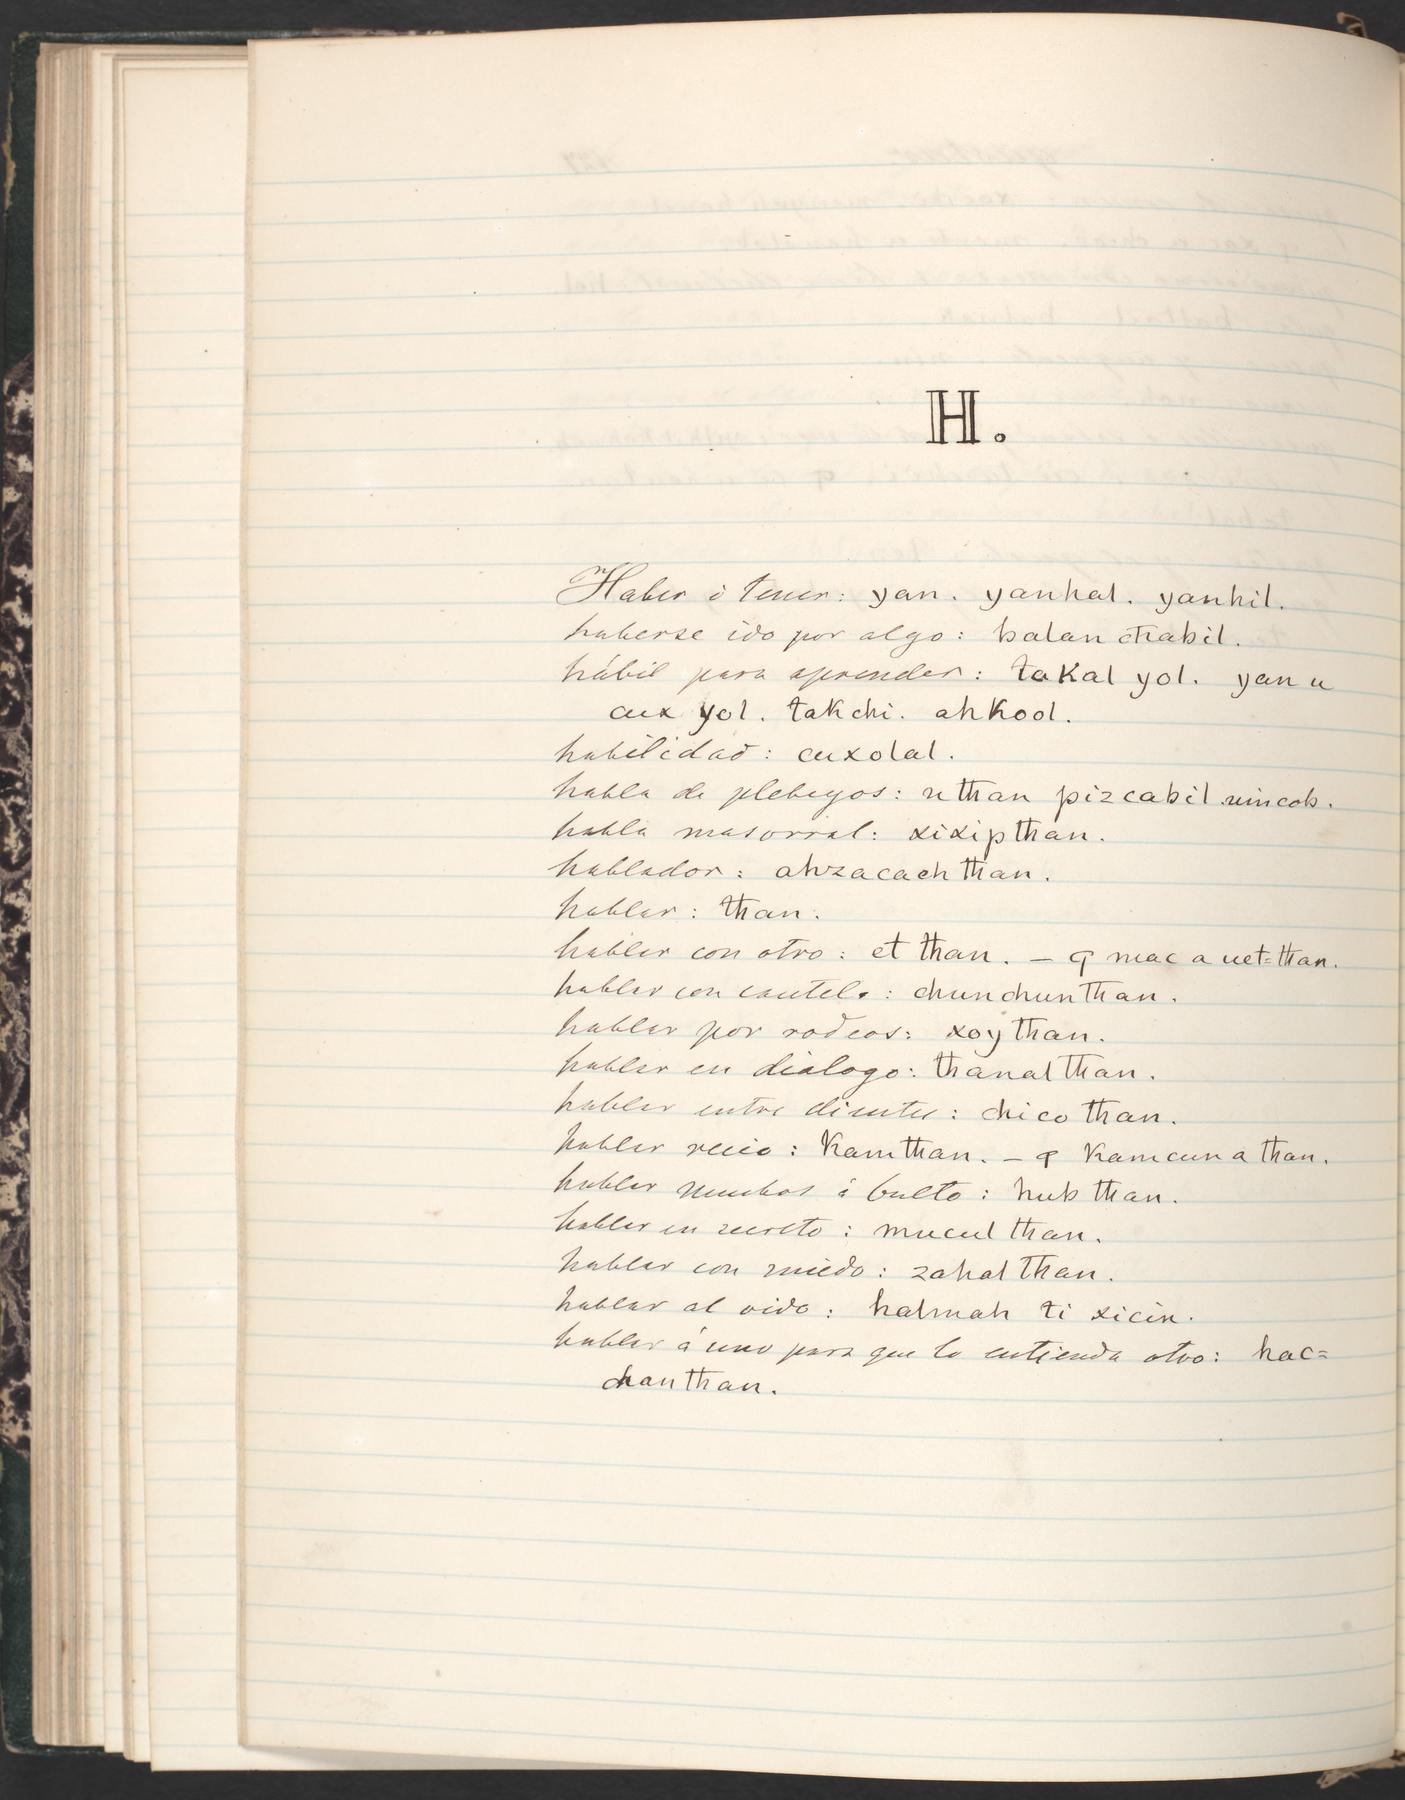 H.
Haber ó tener: yan. yanhal. yanhil.
haberse ido por algo: balan chabil.
hábil para aprender: takal yol. yan u
cux yol. takchi. ahkool.
habilidad: cuxolal.
habla de plebeyos: u than pizcabil uincob.
habla masorral: xixip than.
hablador: ahzacach than.
hablar: than.
hablar con otro: et than. – ꟼ mac a uet=than.
hablar con cautela: chunchun than.
hablar por rodeos: xoy than.
hablar en dialogo: thanal than.
hablar entre dientes: chico than.
hablar recio: kam than. – ꟼ kamcun a than.
hablar muchos á bulto: hub than.
hablar en secreto: mucul than.
hablar con miedo: zahal than.
hablar al oido: halmah ti xicin.
hablar á uno para que lo entienda otro: hac=
chan than.